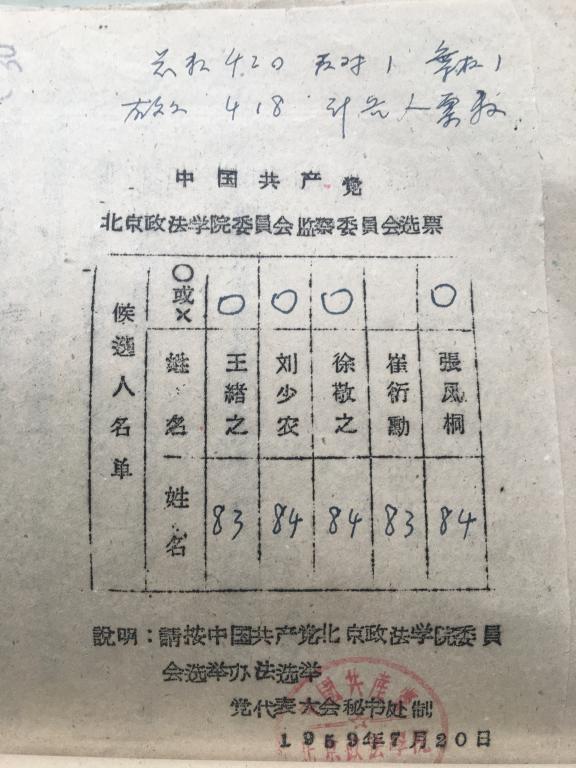 420 反对 1 弃权 1
418 人票数
中国共产党
北京政法学院委員会监察委員会选票
候选人名单
○或× ○ ○ ○ ○
姓名 王緒之 刘少农 徐敬之 崔衍勳 張凤桐
姓名 83 84 84 83 84
說明：請按中国共产党北京政法学院委員
会选举办法选举
党代表大会秘书处制
1959年7月20日